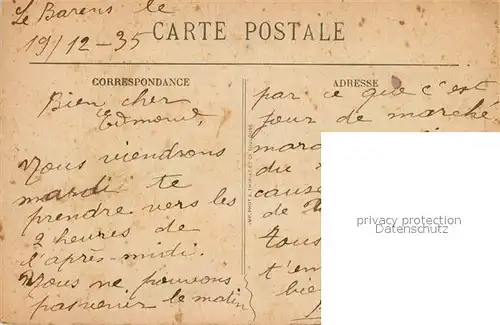 Le Barens le
19/12-35
CARTE POSTALE
CORRESPONDANCE
Bien cher
Edmond,
Nous viendrons
mardi te
prendre vers les
2 heures de
l'après-midi.
Nous ne pouvons
pas venir le matin
ADRESSE
par ce que c'est
jour de marche
du
cause
de
tous
t'em
bie
privacy protection
Datenschutz